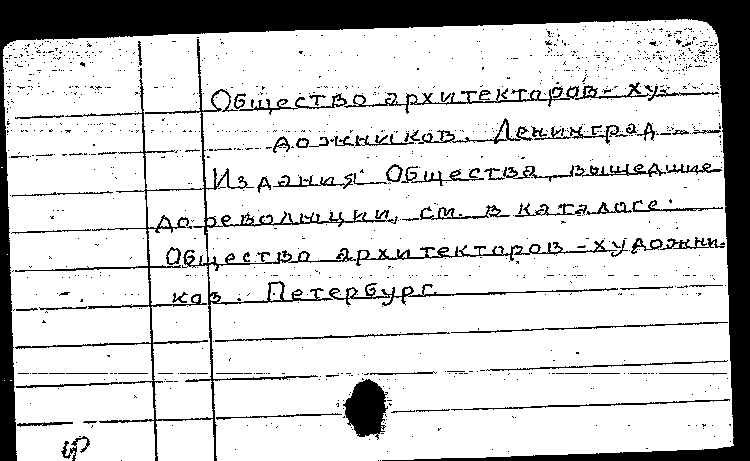 Общество архитекторов-ху-
дожников. Ленинград
Издания Общества, вышедшие
до революции, см. в каталоге:
Общество архитекторов-художни-
ков. Петербург.